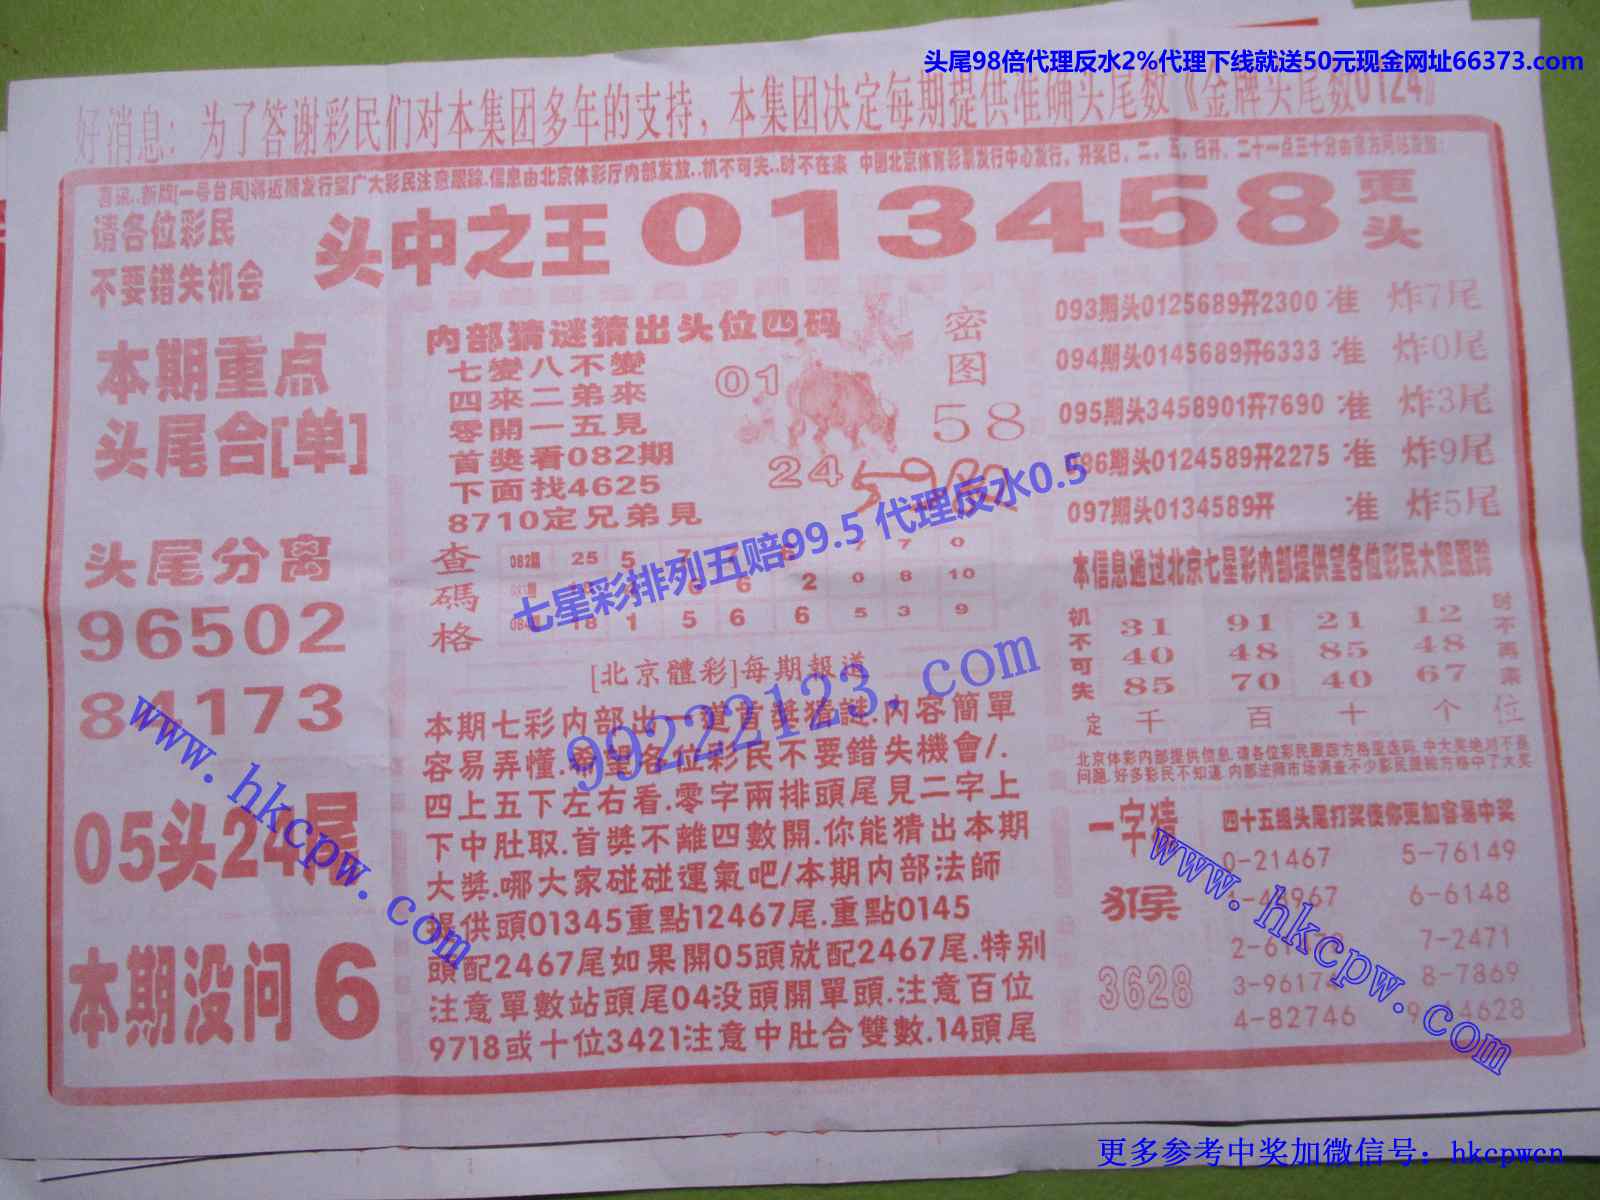 头尾98倍代理反水2%代理下线就送50元现金网址66373.com
好消息：为了答谢彩民们对本集团多年的支持，本集团决定每期提供准确头尾数《金牌头尾数0124》
喜讯..新版[一号台风]将近期发行望广大彩民注意跟踪.信息由北京体彩厅内部发放..机不可失..时不在来 中国北京体育彩票发行中心发行，开奖日，二，五，日开，二十一点三十分由官方网站发放：
请各位彩民
不要错失机会
头中之王 013458 更头
本期重点
头尾合[单]
头尾分离
96502
84173
05头24尾
本期没问 6
内部猜谜猜出头位四码
七變八不變
四來二弟來
零開一五見
首獎看082期
下面找4625
8710定兄弟見
密图
01
58
24
查碼格
082期 25 5 7 7 7 7 0
6 2 0 8 10
084 18 1 5 6 6 5 3 9
[北京體彩]每期報道
本期七彩内部出一道首獎猜謎.内容簡單
容易弄懂.希望各位彩民不要錯失機會/.
四上五下左右看.零字兩排頭尾見二字上
下中肚取.首獎不離四數開.你能猜出本期
大獎.哪大家碰碰運氣吧/本期内部法師
提供頭01345重點12467尾.重點0145
頭配2467尾如果開05頭就配2467尾.特别
注意單數站頭尾04没頭開單頭.注意百位
9718或十位3421注意中肚合雙數.14頭尾
093期头0125689开2300 准 炸7尾
094期头0145689开6333 准 炸0尾
095期头3458901开7690 准 炸3尾
086期头0124589开2275 准 炸9尾
097期头0134589开 准 炸5尾
本信息通过北京七星彩内部提供望各位彩民大胆跟踪
机不可失
31 91 21 12
40 48 85 48
85 70 40 67
定 千 百 十 个 位
时不再来
北京体彩内部提供信息.请各位彩民跟踪方格里选码.中大奖绝对不是
问题.好多彩民不知道.内部法师市场调查不少彩民跟我方格中了大奖
一字猜
猴
3628
四十五组头尾打奖使你更加容易中奖
0-21467 5-76149
6-6148
7-2471
8-7869
4-82746
七星彩排列五赔99.5 代理反水0.5
99222123.com
www.hkcpw.com
www.hkcpw.com
更多参考中奖加微信号：hkcpwcn